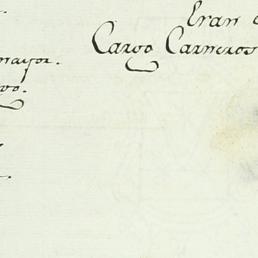 Eran
Cargo Carneros
mayor.
vo.